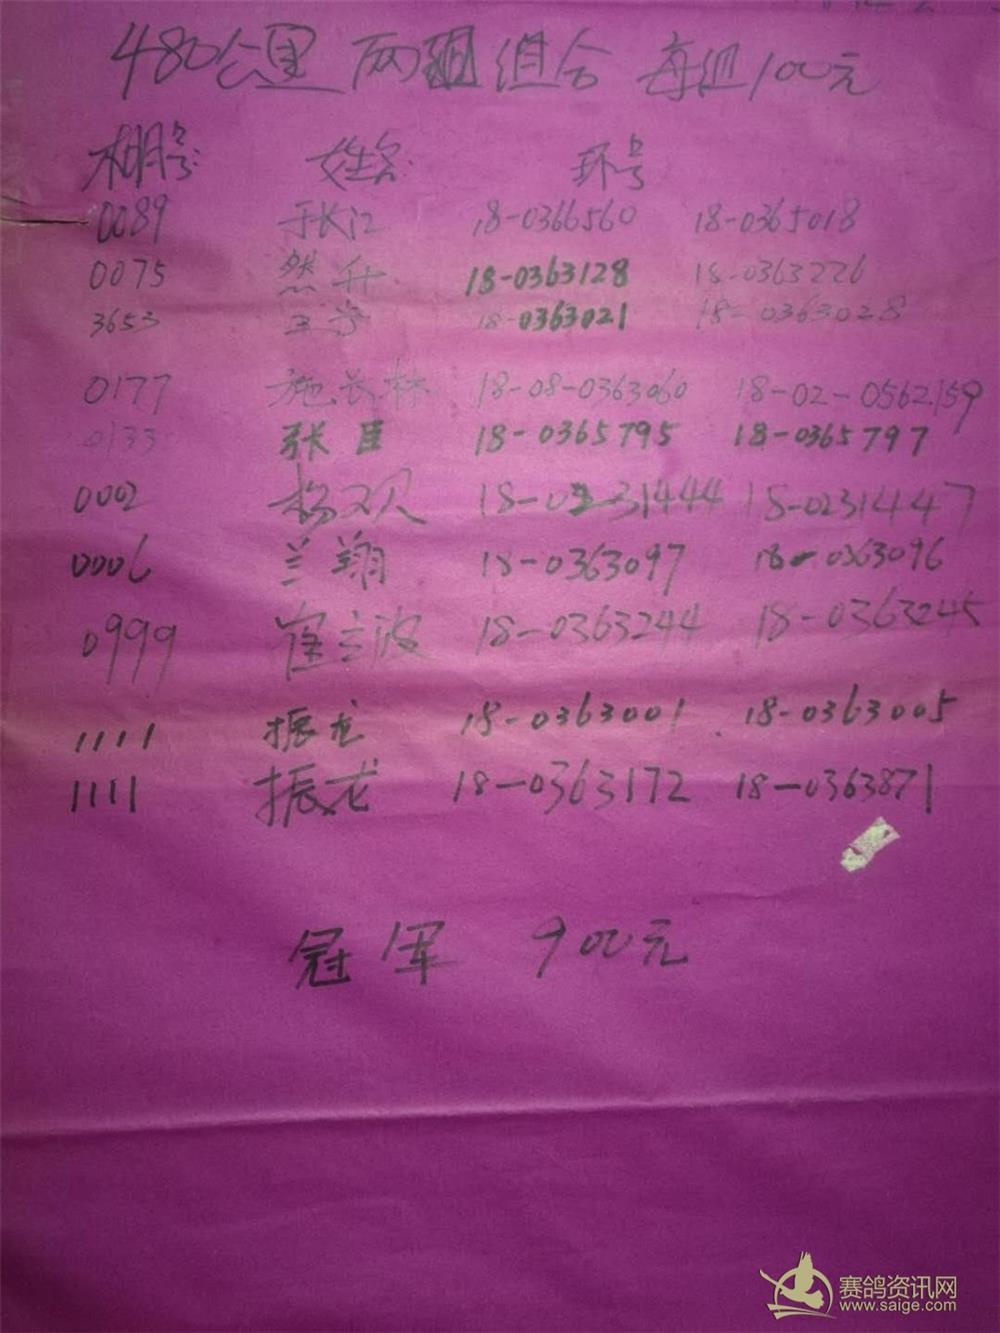 480公里 两组组合 每组100元
棚号: 姓名: 环号
0089 于长江 18-0366560 18-0365018
0075 然升 18-0363128 18-0363226
3653 王 18-0363021 18-0363028
0177 施长林 18-08-0363060 18-02-0562159
0133 张臣 18-0365795 18-0365797
0002 杨双贝 18-0231444 18-0231447
0006 兰翔 18-0363097 18-0363096
0999 崔立波 18-0363244 18-0363245
1111 振龙 18-0363001 18-0363005
1111 振龙 18-0363172 18-0363871
冠军 900元
赛鸽资讯网
www.saige.com